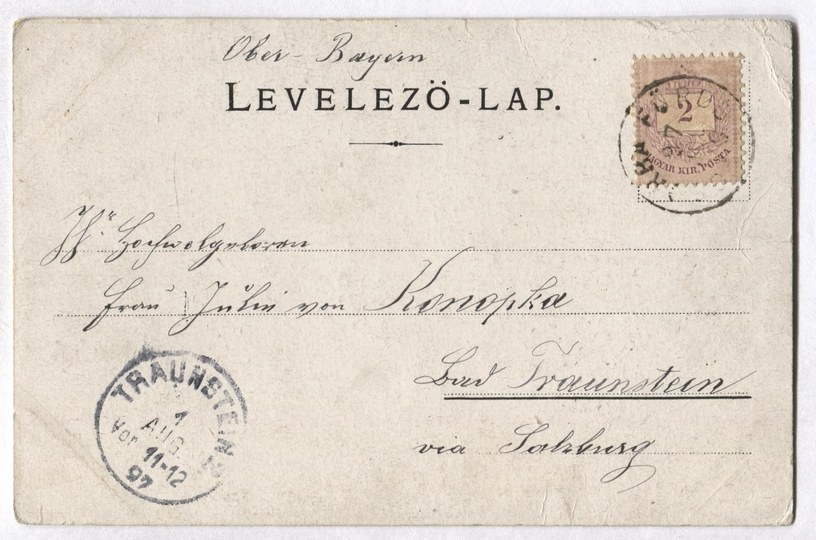 Ober-Bayern
LEVELEZÖ-LAP.
2
MAGYAR KIR. POSTA
FÜRD
97
Hochwolgeboren
Frau Julie von Konopka
Bad Traunstein
via Salzburg
TRAUNSTEIN
1
AUG.
Vor. 11-12
97